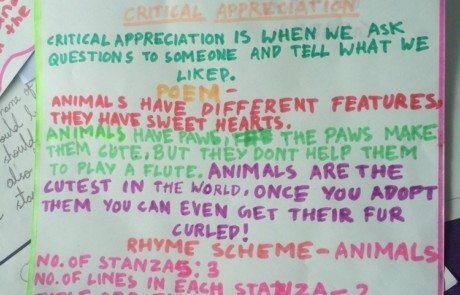 CRITICAL APPRECIATION
CRITICAL APPRECIATION IS WHEN WE ASK
QUESTIONS TO SOMEONE AND TELL WHAT WE
LIKED.
POEM-
ANIMALS HAVE DIFFERENT FEATURES,
THEY HAVE SWEET HEARTS.
ANIMALS HAVE PAWS, THE PAWS MAKE
THEM CUTE, BUT THEY DONT HELP THEM
TO PLAY A FLUTE. ANIMALS ARE THE
CUTEST IN THE WORLD, ONCE YOU ADOPT
THEM YOU CAN EVEN GET THEIR FUR
CURLED!
RHYME SCHEME - ANIMALS
NO. OF STANZAS: 3
NO. OF LINES IN EACH STANZA - 2
the
name of
should
also